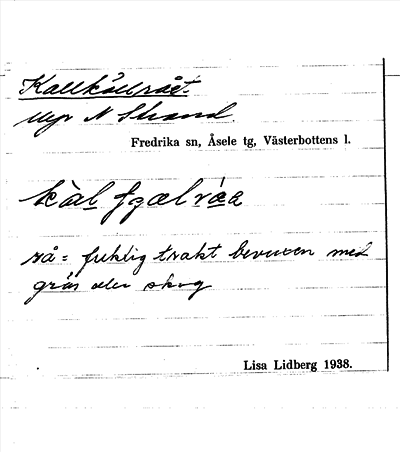 Kallkällrået.
Myr N Strand.
Fredrika sn, Åsele tg, Västerbottens l.
rå = fuktig trakt bevuxen med
gräs eller skog
Lisa Lidberg 1938.